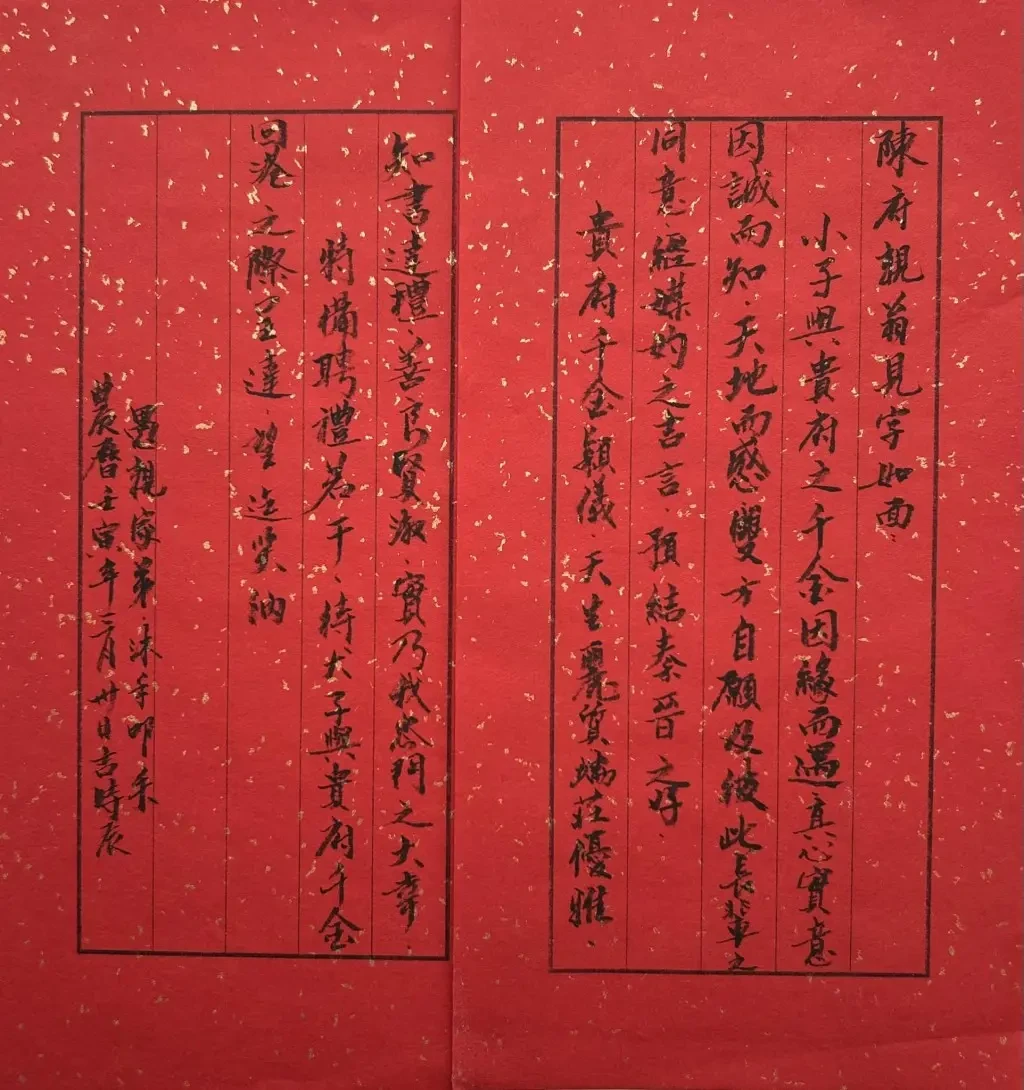 陳府親翁見字如面.
小子與貴府之千金因緣而遇真心實意
因誠而知.天地而感雙方自願及彼此長輩之
同意.經媒妁之吉言.預結秦晉之好.
貴府千金穎儀.天生麗質端莊優雅.
知書達禮.善良賢淑.實乃我 門之大幸.
特備聘禮若干.待犬子與貴府千金
回港之際 達.望 笑納
愚親家弟. 手叩 
農曆壬寅年三月廿日吉時辰